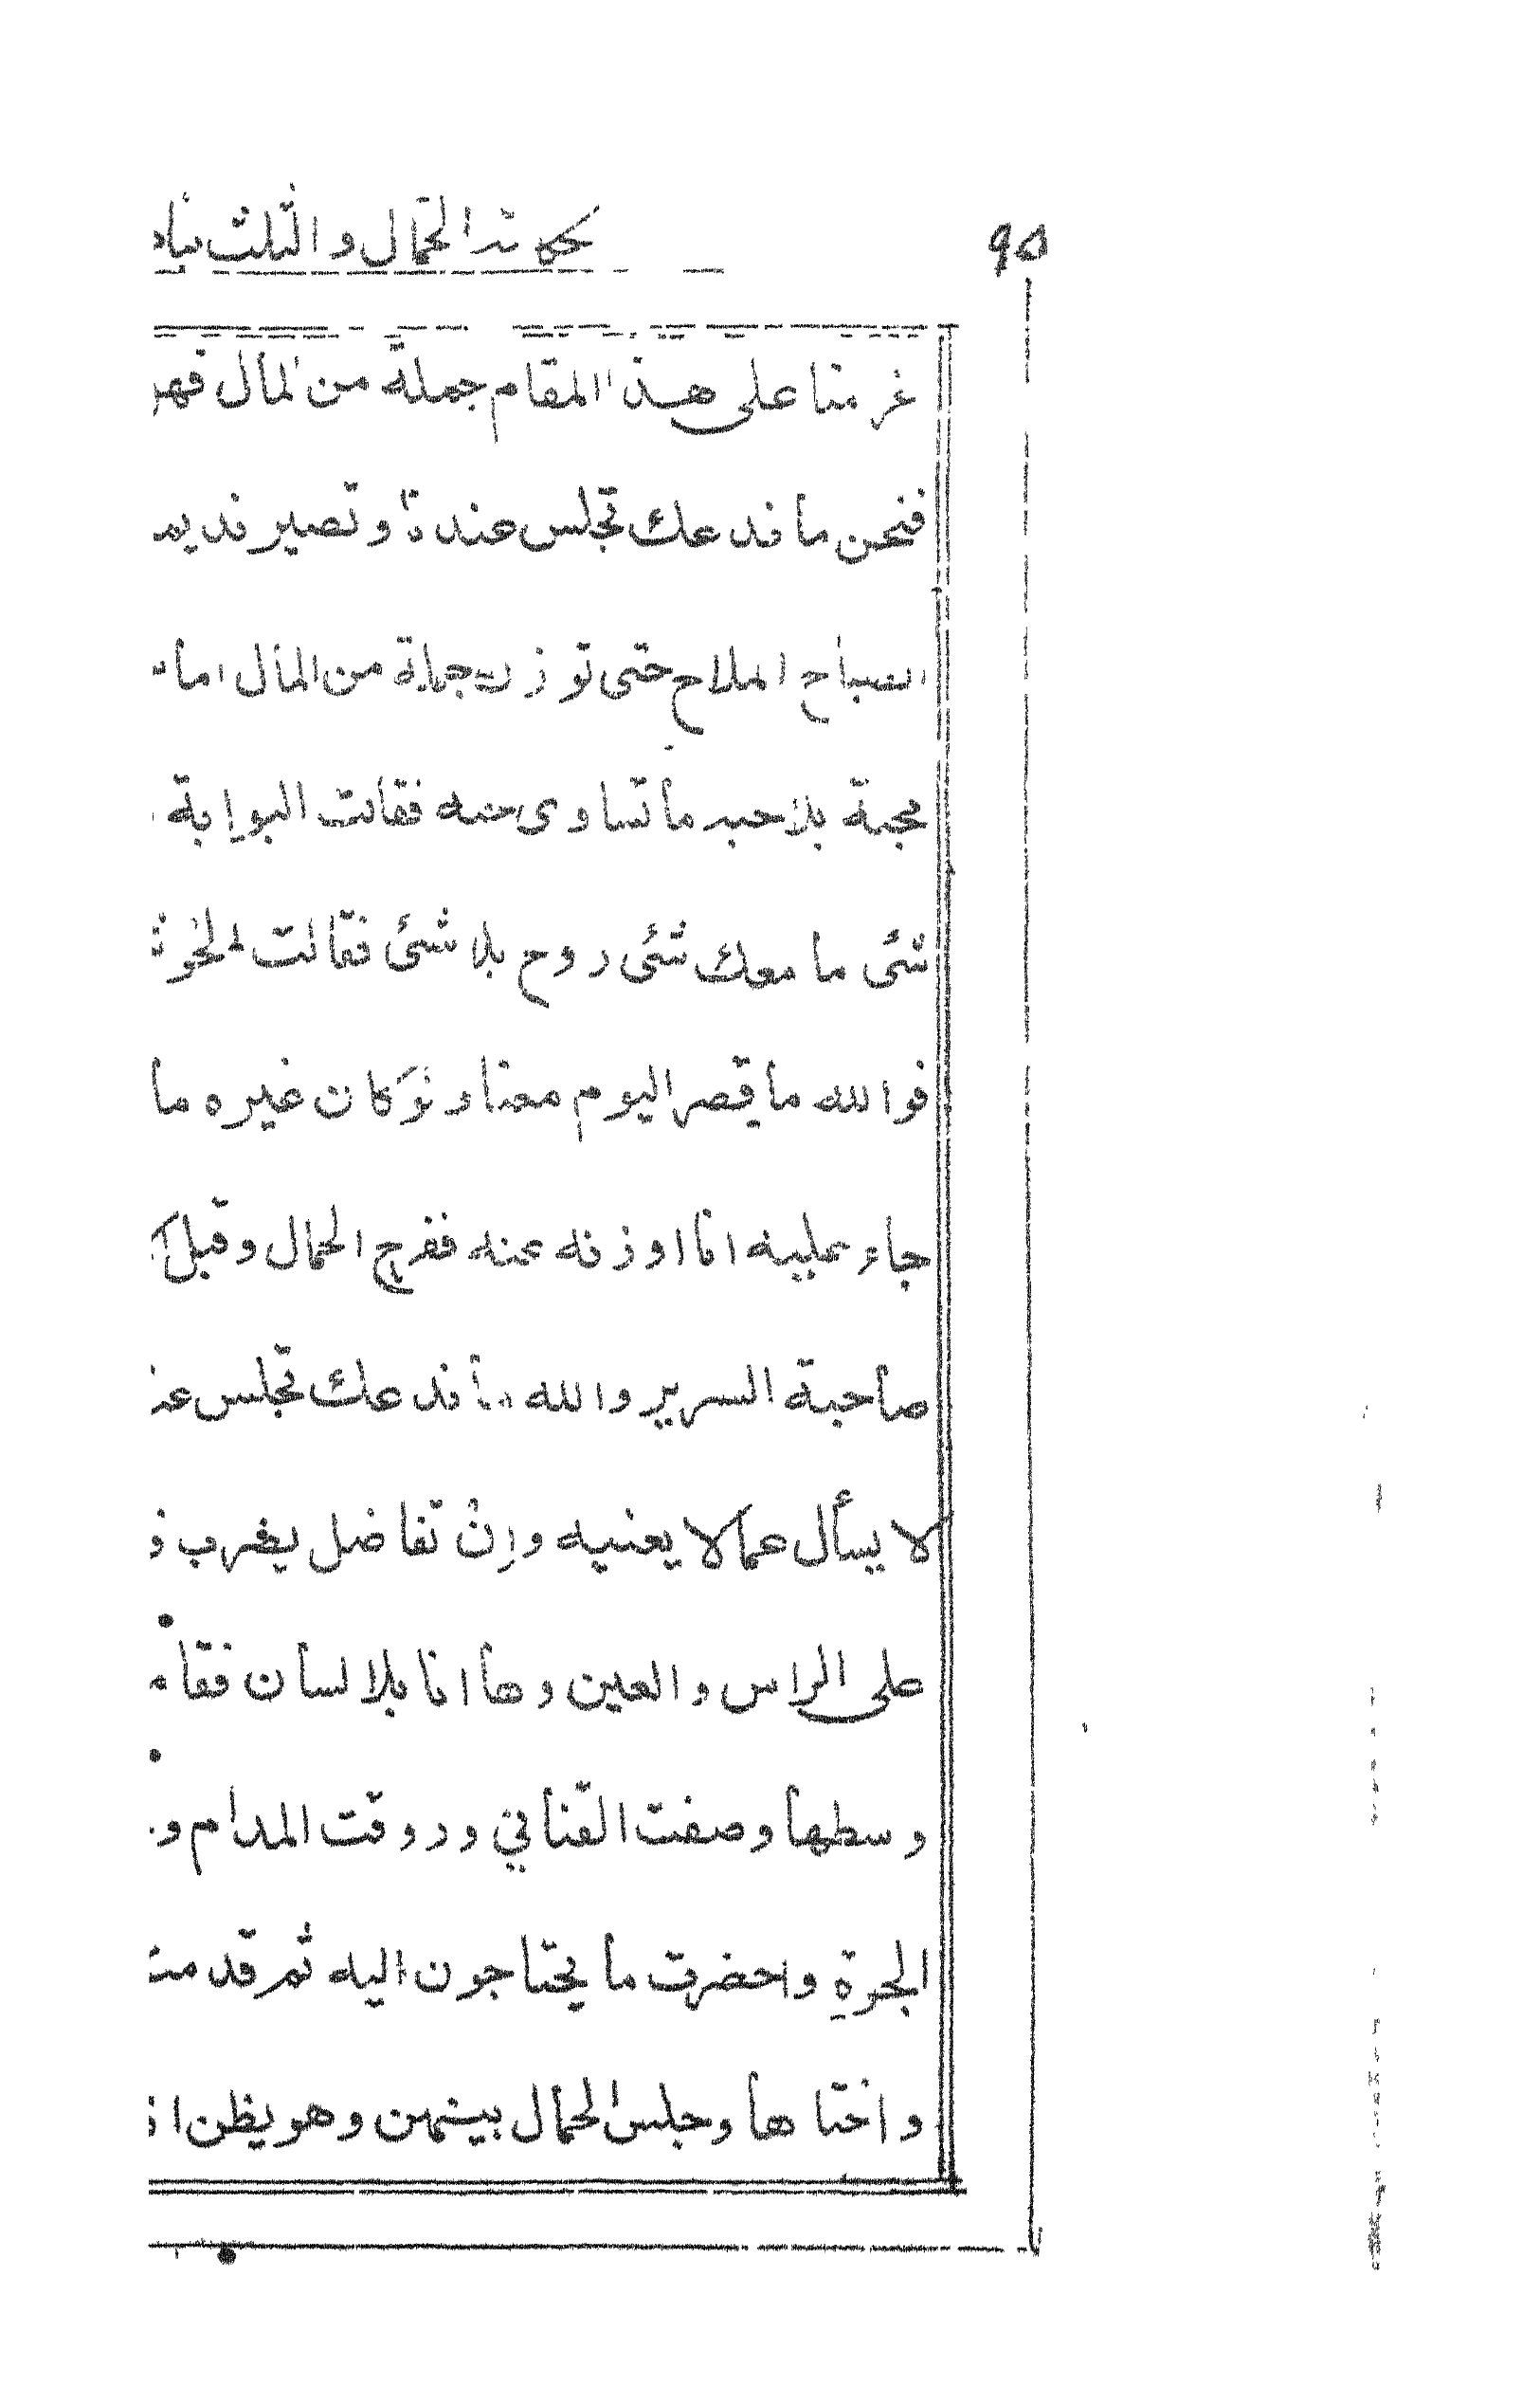 ٩٥ حكاية الحمال والثلث بنات
غرمنا على هذا المقام جملة من المال فهل
فنحن ما ندعك تجلس عندنا وتصير نديم
الصباح الملاح حتى توزن جملة من المال اما
محبة بلا حبه ما تساوى حبه فقالت البوابة
شئى ما معك شئى روح بلا شئى فقالت الحو
فوالله ما قصر اليوم معنا ولو كان غيره ما
جاء عليه انا اوزنه عنه ففرح الحمال وقبل
صاحبة السرير والله ما ندعك تجلس عند
لا يسأل عما لا يعنيه وان تفاضل يضرب
على الراس والعين وها انا بلا لسان فقامت
وسطها وصفت القنانى وروقت المدام و
الجرة واحضرت ما يحتاجون اليه ثم قدمت
واختاها وجلس الحمال بينهن وهو يظن ا